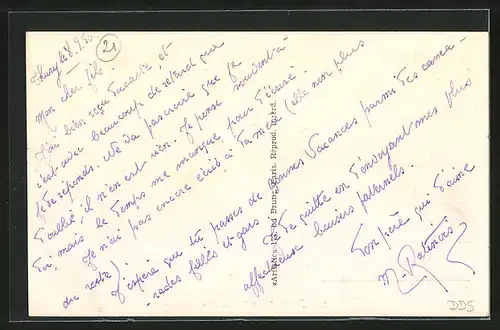 Thury le 8.9.50.
21
Mon cher fils.
J'ai bien reçu ta carte, et
c'est avec beaucoup de retard que
je te réponds. Ne va pas croire que je
t'oublie; il n'en est rien. Je pense souvent à
toi; mais le temps me manque pour t'écrire.
Je n'ai pas encore écrit à ta mère (elle non plus
du reste) J'espère que tu passes de bonnes vacances parmi tes cama-
rades filles et gars. Je te quitte en t'envoyant mes plus
affectueux baisers paternels.
Ton père qui t'aime
DDS